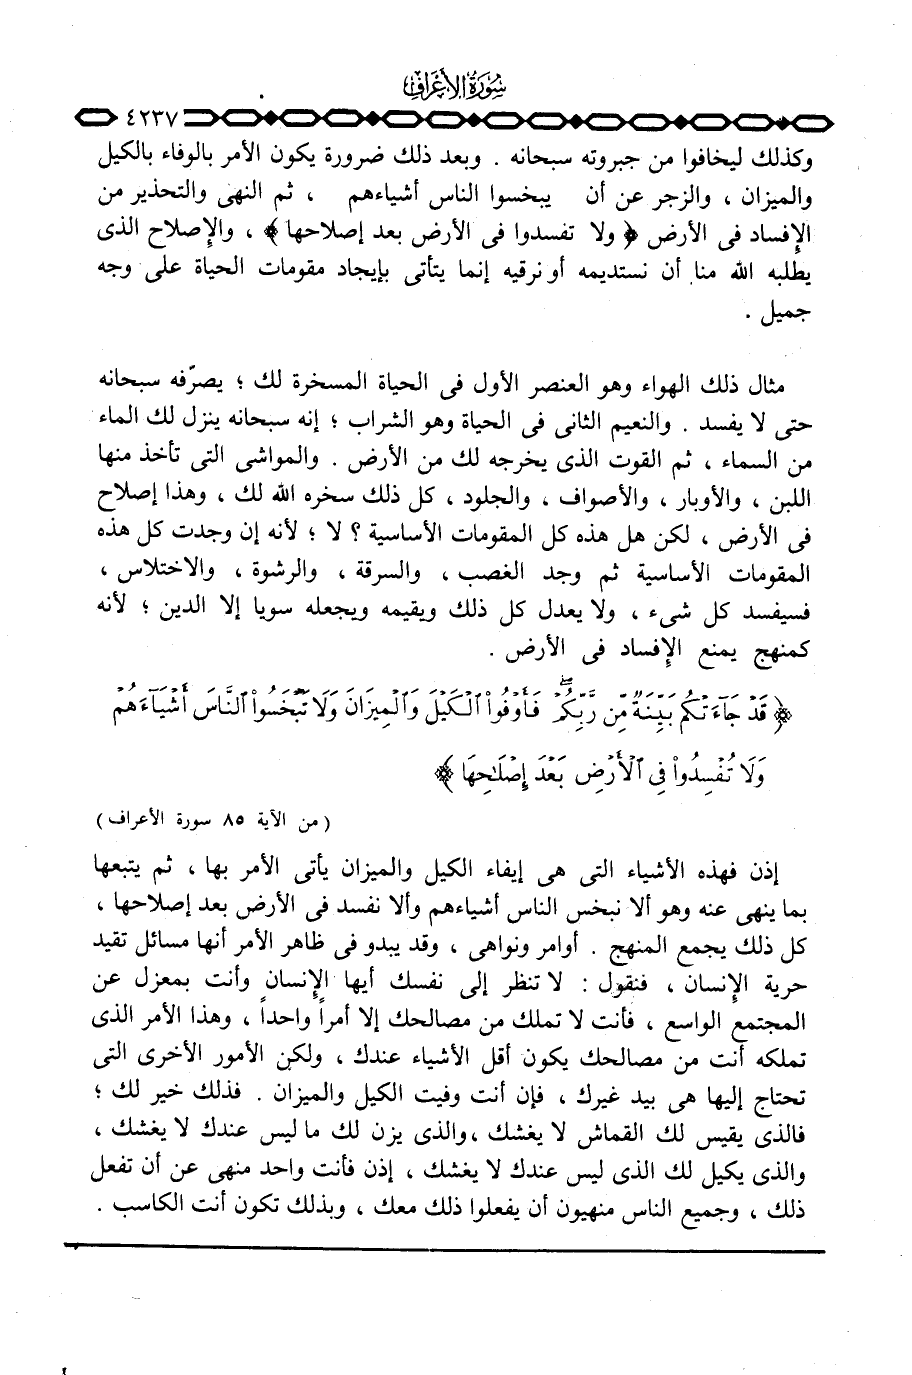 سورة الأعراف
٤٢٣٧
وكذلك ليخافوا من جبروته سبحانه . وبعد ذلك ضرورة يكون الأمر بالوفاء بالكيل
والميزان ، والزجر عن أن يبخسوا الناس أشياءهم ، ثم النهى والتحذير من
الإفساد فى الأرض ﴿ ولا تفسدوا فى الأرض بعد إصلاحها ﴾ ، والإصلاح الذى
يطلبه الله منا أن نستديمه أو نرقيه إنما يتأتى بإيجاد مقومات الحياة على وجه
جميل .
مثال ذلك الهواء وهو العنصر الأول فى الحياة المسخرة لك ؛ يصرّفه سبحانه
حتى لا يفسد . والنعيم الثانى فى الحياة وهو الشراب ؛ إنه سبحانه ينزل لك الماء
من السماء ، ثم القوت الذى يخرجه لك من الأرض . والمواشى التى تأخذ منها
اللبن ، والأوبار ، والأصواف ، والجلود ، كل ذلك سخره الله لك ، وهذا إصلاح
فى الأرض ، لكن هل هذه كل المقومات الأساسية ؟ لا ؛ لأنه إن وجدت كل هذه
المقومات الأساسية ثم وجد الغصب ، والسرقة ، والرشوة ، والاختلاس ،
فسيفسد كل شىء ، ولا يعدل كل ذلك ويقيمه ويجعله سويا إلا الدين ؛ لأنه
كمنهج يمنع الإفساد فى الأرض .
﴿ قَدْ جَآءَتْكُم بَيِّنَةٌ مِّن رَّبِّكُمْ ۖ فَأَوْفُوا۟ ٱلْكَيْلَ وَٱلْمِيزَانَ وَلَا تَبْخَسُوا۟ ٱلنَّاسَ أَشْيَآءَهُمْ
وَلَا تُفْسِدُوا۟ فِى ٱلْأَرْضِ بَعْدَ إِصْلَٰحِهَا ﴾
( من الآية ٨٥ سورة الأعراف )
إذن فهذه الأشياء التى هى إيفاء الكيل والميزان يأتى الأمر بها ، ثم يتبعها
بما ينهى عنه وهو ألا نبخس الناس أشياءهم وألا نفسد فى الأرض بعد إصلاحها ،
كل ذلك يجمع المنهج . أوامر ونواهى ، وقد يبدو فى ظاهر الأمر أنها مسائل تقيد
حرية الإنسان ، فنقول : لا تنظر إلى نفسك أيها الإنسان وأنت بمعزل عن
المجتمع الواسع ، فأنت لا تملك من مصالحك إلا أمراً واحداً ، وهذا الأمر الذى
تملكه أنت من مصالحك يكون أقل الأشياء عندك ، ولكن الأمور الأخرى التى
تحتاج إليها هى بيد غيرك ، فإن أنت وفيت الكيل والميزان . فذلك خير لك ؛
فالذى يقيس لك القماش لا يغشك ، والذى يزن لك ما ليس عندك لا يغشك ،
والذى يكيل لك الذى ليس عندك لا يغشك ، إذن فأنت واحد منهى عن أن تفعل
ذلك ، وجميع الناس منهيون أن يفعلوا ذلك معك ، وبذلك تكون أنت الكاسب .